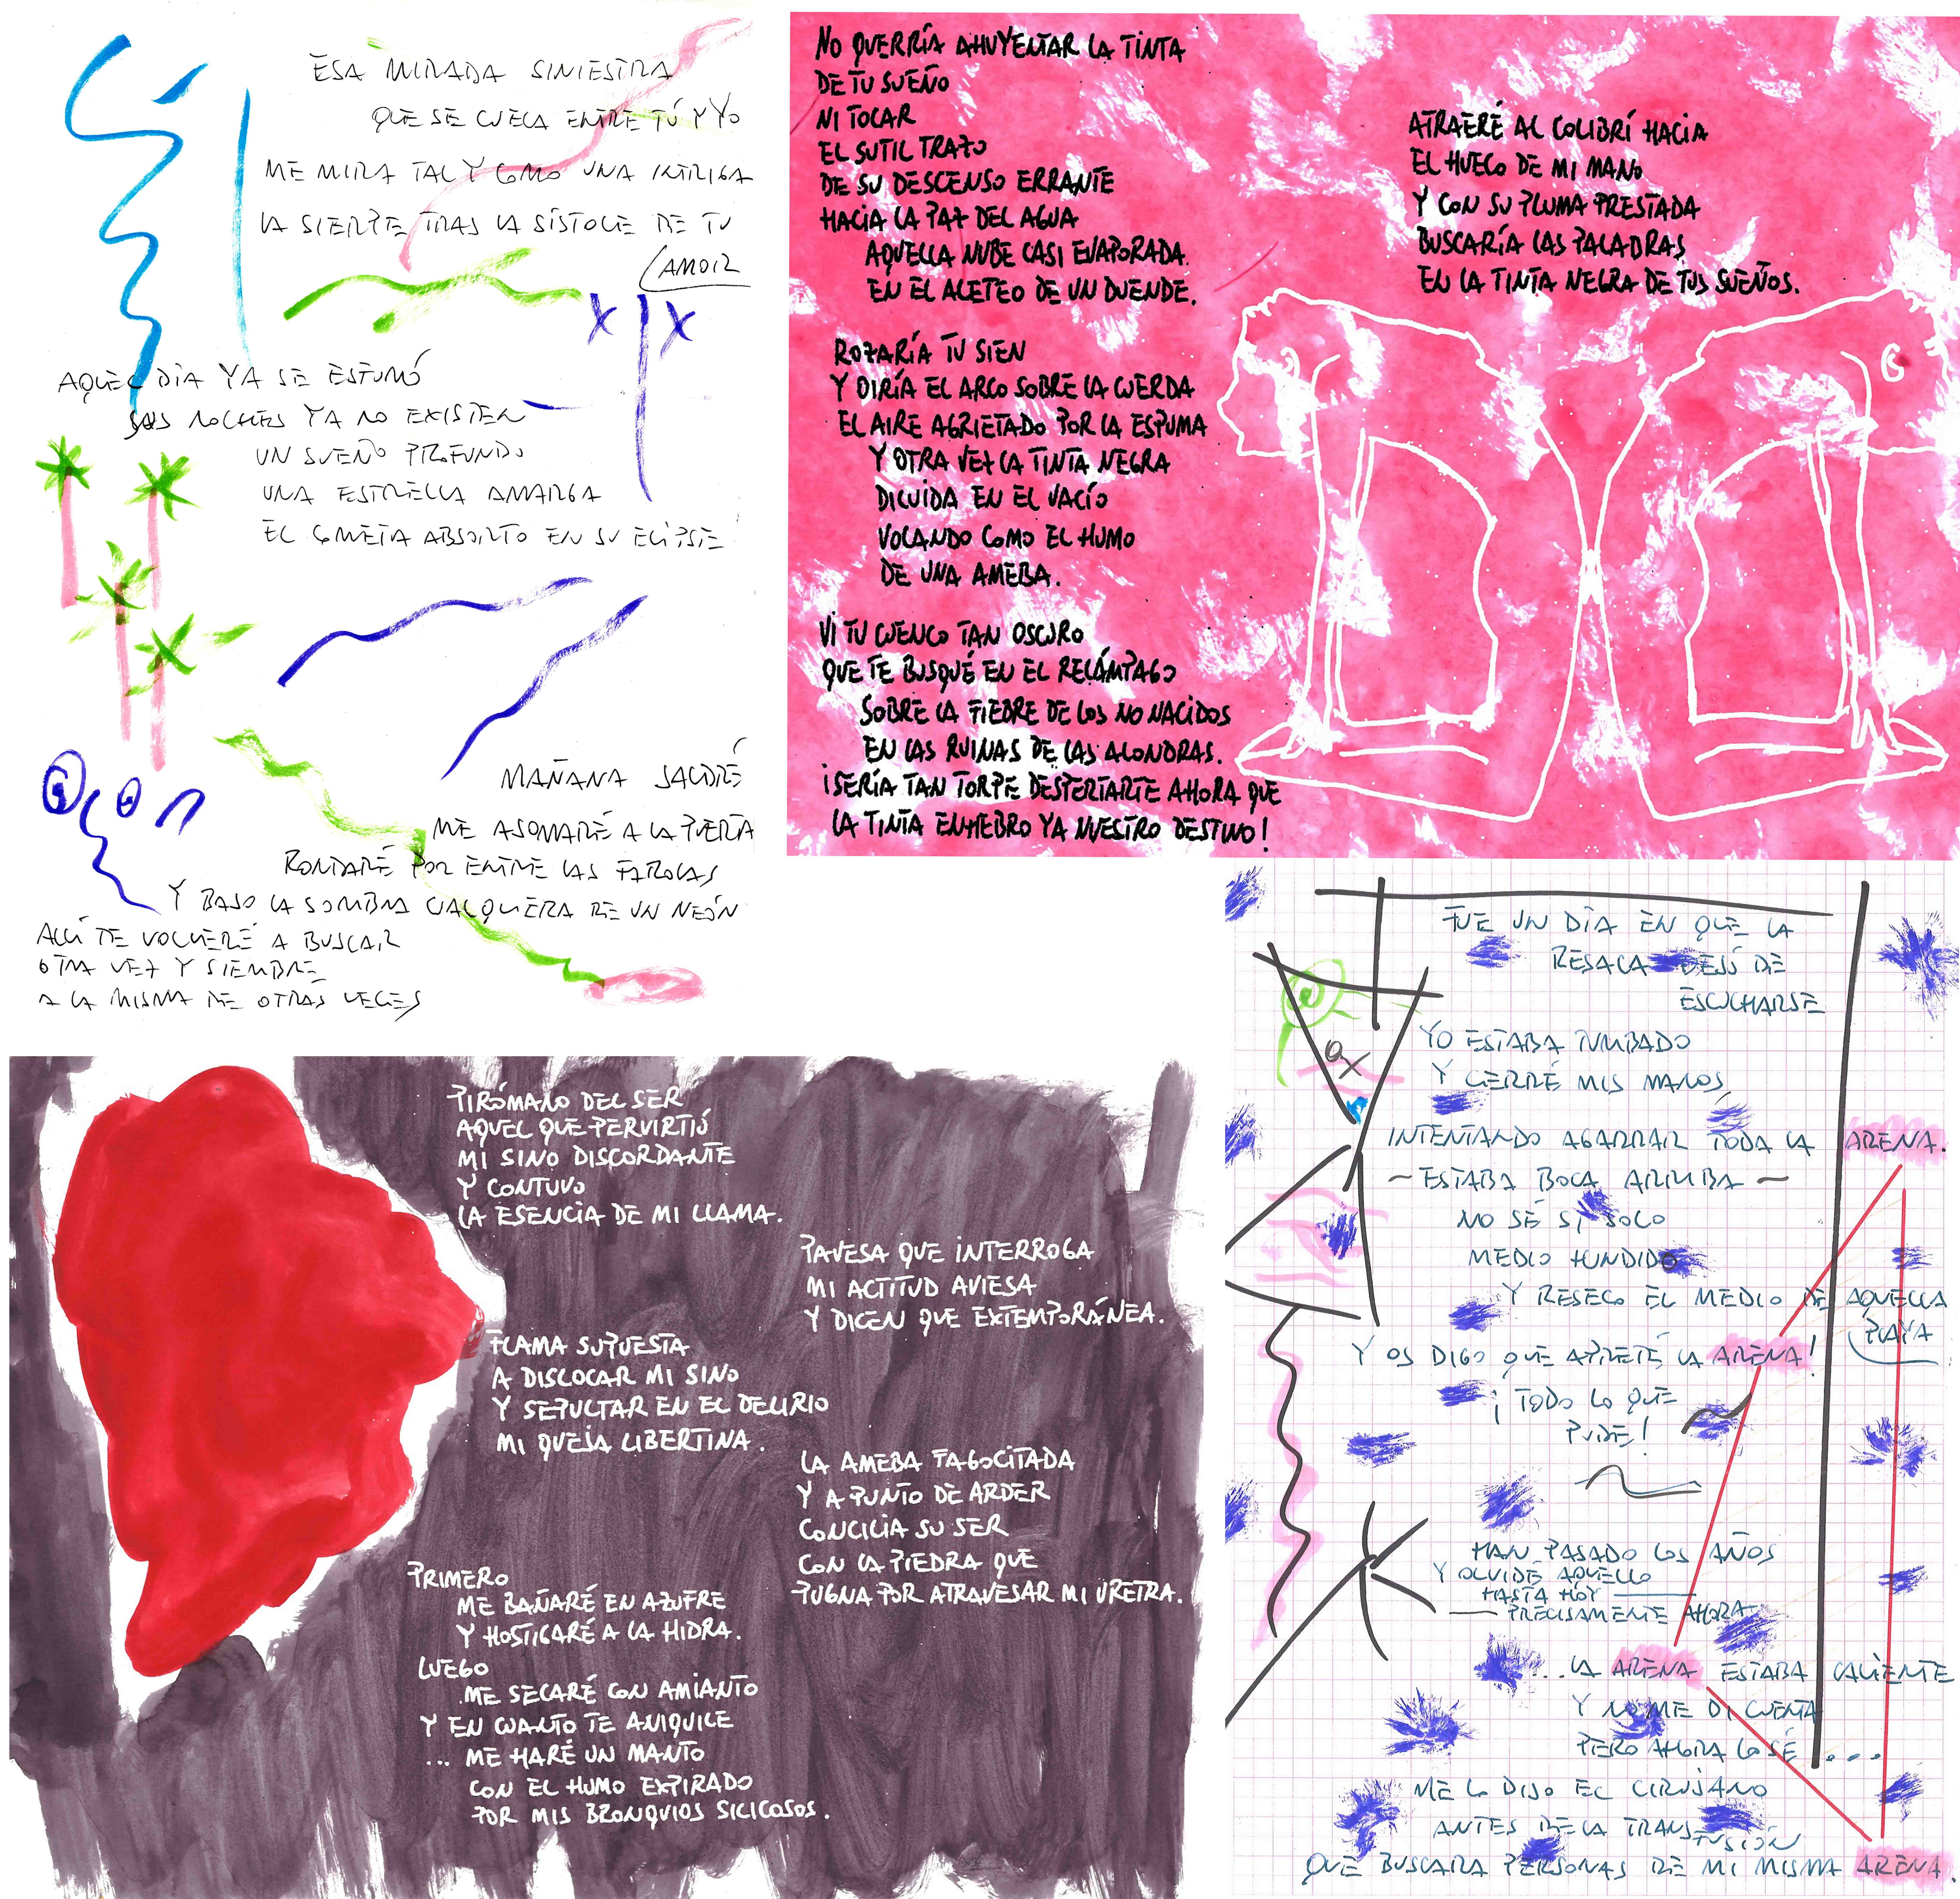 ESA MIRADA SINIESTRA
QUE SE CUELA ENTRE TÚ Y YO
ME MIRA TAL Y COMO UNA INTRIGA
LA SIERPE TRAS LA SÍSTOLE DE TU
AMOR
AQUEL DÍA YA SE ESFUMÓ
SUS NOCHES YA NO EXISTEN
UN SUEÑO PROFUNDO
UNA ESTRELLA AMARGA
EL COMETA ABSORTO EN SU ELIPSE
MAÑANA SALDRÉ
ME ASOMARÉ A LA PUERTA
RONDARÉ POR ENTRE LAS FAROLAS
Y BAJO LA SOMBRA CUALQUIERA DE UN NEÓN
ALLÍ TE VOLVERÉ A BUSCAR
OTRA VEZ Y SIEMPRE
A LA MISMA DE OTRAS VECES
NO QUERRÍA AHUYENTAR LA TINTA
DE TU SUEÑO
NI TOCAR
EL SUTIL TRAZO
DE SU DESCENSO ERRANTE
HACIA LA PAZ DEL AGUA
AQUELLA NUBE CASI EVAPORADA
EN EL ALETEO DE UN DUENDE.
ROZARÍA TU SIEN
Y OIRÍA EL ARCO SOBRE LA CUERDA
EL AIRE AGRIETADO POR LA ESPUMA
Y OTRA VEZ LA TINTA NEGRA
DILUIDA EN EL VACÍO
VOLANDO COMO EL HUMO
DE UNA AMEBA.
VI TU CUENCO TAN OSCURO
QUE TE BUSQUÉ EN EL RELÁMPAGO
SOBRE LA FIEBRE DE LOS NO NACIDOS
EN LAS RUINAS DE LAS ALONDRAS.
¡SERÍA TAN TORPE DESPERTARTE AHORA QUE
LA TINTA ENHEBRO YA NUESTRO DESTINO!
ATRAERÉ AL COLIBRÍ HACIA
EL HUECO DE MI MANO
Y CON SU PLUMA PRESTADA
BUSCARÍA LAS PALABRAS
EN LA TINTA NEGRA DE TUS SUEÑOS.
PIRÓMANO DEL SER
AQUEL QUE PERVIRTIÓ
MI SINO DISCORDANTE
Y CONTUVO
LA ESENCIA DE MI LLAMA.
FLAMA SUPUESTA
A DISLOCAR MI SINO
Y SEPULTAR EN EL DELIRIO
MI QUEJA LIBERTINA.
PRIMERO
ME BAÑARÉ EN AZUFRE
Y HOSTIGARÉ A LA HIDRA.
LUEGO
ME SECARÉ CON AMIANTO
Y EN CUANTO TE ANIQUILE
... ME HARÉ UN MANTO
CON EL HUMO EXPIRADO
POR MIS BRONQUIOS SILICOSOS.
PAVESA QUE INTERROGA
MI ACTITUD AVIESA
Y DICEN QUE EXTEMPORÁNEA.
LA AMEBA FAGOCITADA
Y A PUNTO DE ARDER
CONCILIA SU SER
CON LA PIEDRA QUE
PUGNA POR ATRAVESAR MI URETRA.
FUE UN DÍA EN QUE LA
RESACA DEJÓ DE
ESCUCHARSE
YO ESTABA TUMBADO
Y CERRÉ MIS MANOS
INTENTANDO AGARRAR TODA LA ARENA.
~ ESTABA BOCA ARRIBA ~
NO SÉ SI SOLO
MEDIO HUNDIDO
Y RESECO EL MEDIO DE AQUELLA
PLAYA
Y OS DIGO QUE APRETÉ LA ARENA!
¡TODO LO QUE
PUDE!
HAN PASADO LOS AÑOS
Y OLVIDÉ AQUELLO
HASTA HOY
PRECISAMENTE AHORA
...LA ARENA ESTABA CALIENTE
Y NO ME DI CUENTA
PERO AHORA LO SÉ ....
ME LO DIJO EL CIRUJANO
ANTES DE LA TRANSFUSIÓN
QUE BUSCARA PERSONAS DE MI MISMA ARENA.